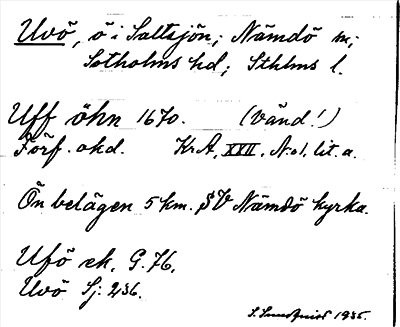 Uvö, ö i Saltsjön; Nämdö sn;
Sotholms hd; Sthlms l.
Uff öhn 1670. (Vänd!)
Förf. okd. KrA, XXII, No 1, lit. a.
Ön belägen 5 km. SV Nämdö kyrka.
Ufö ek. G. 76.
Uvö Sj. 236.
S. Lundqvist 1935.